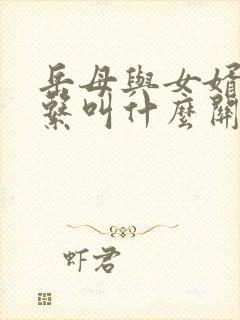 岳母與女婿
繫叫什麼關
虾君